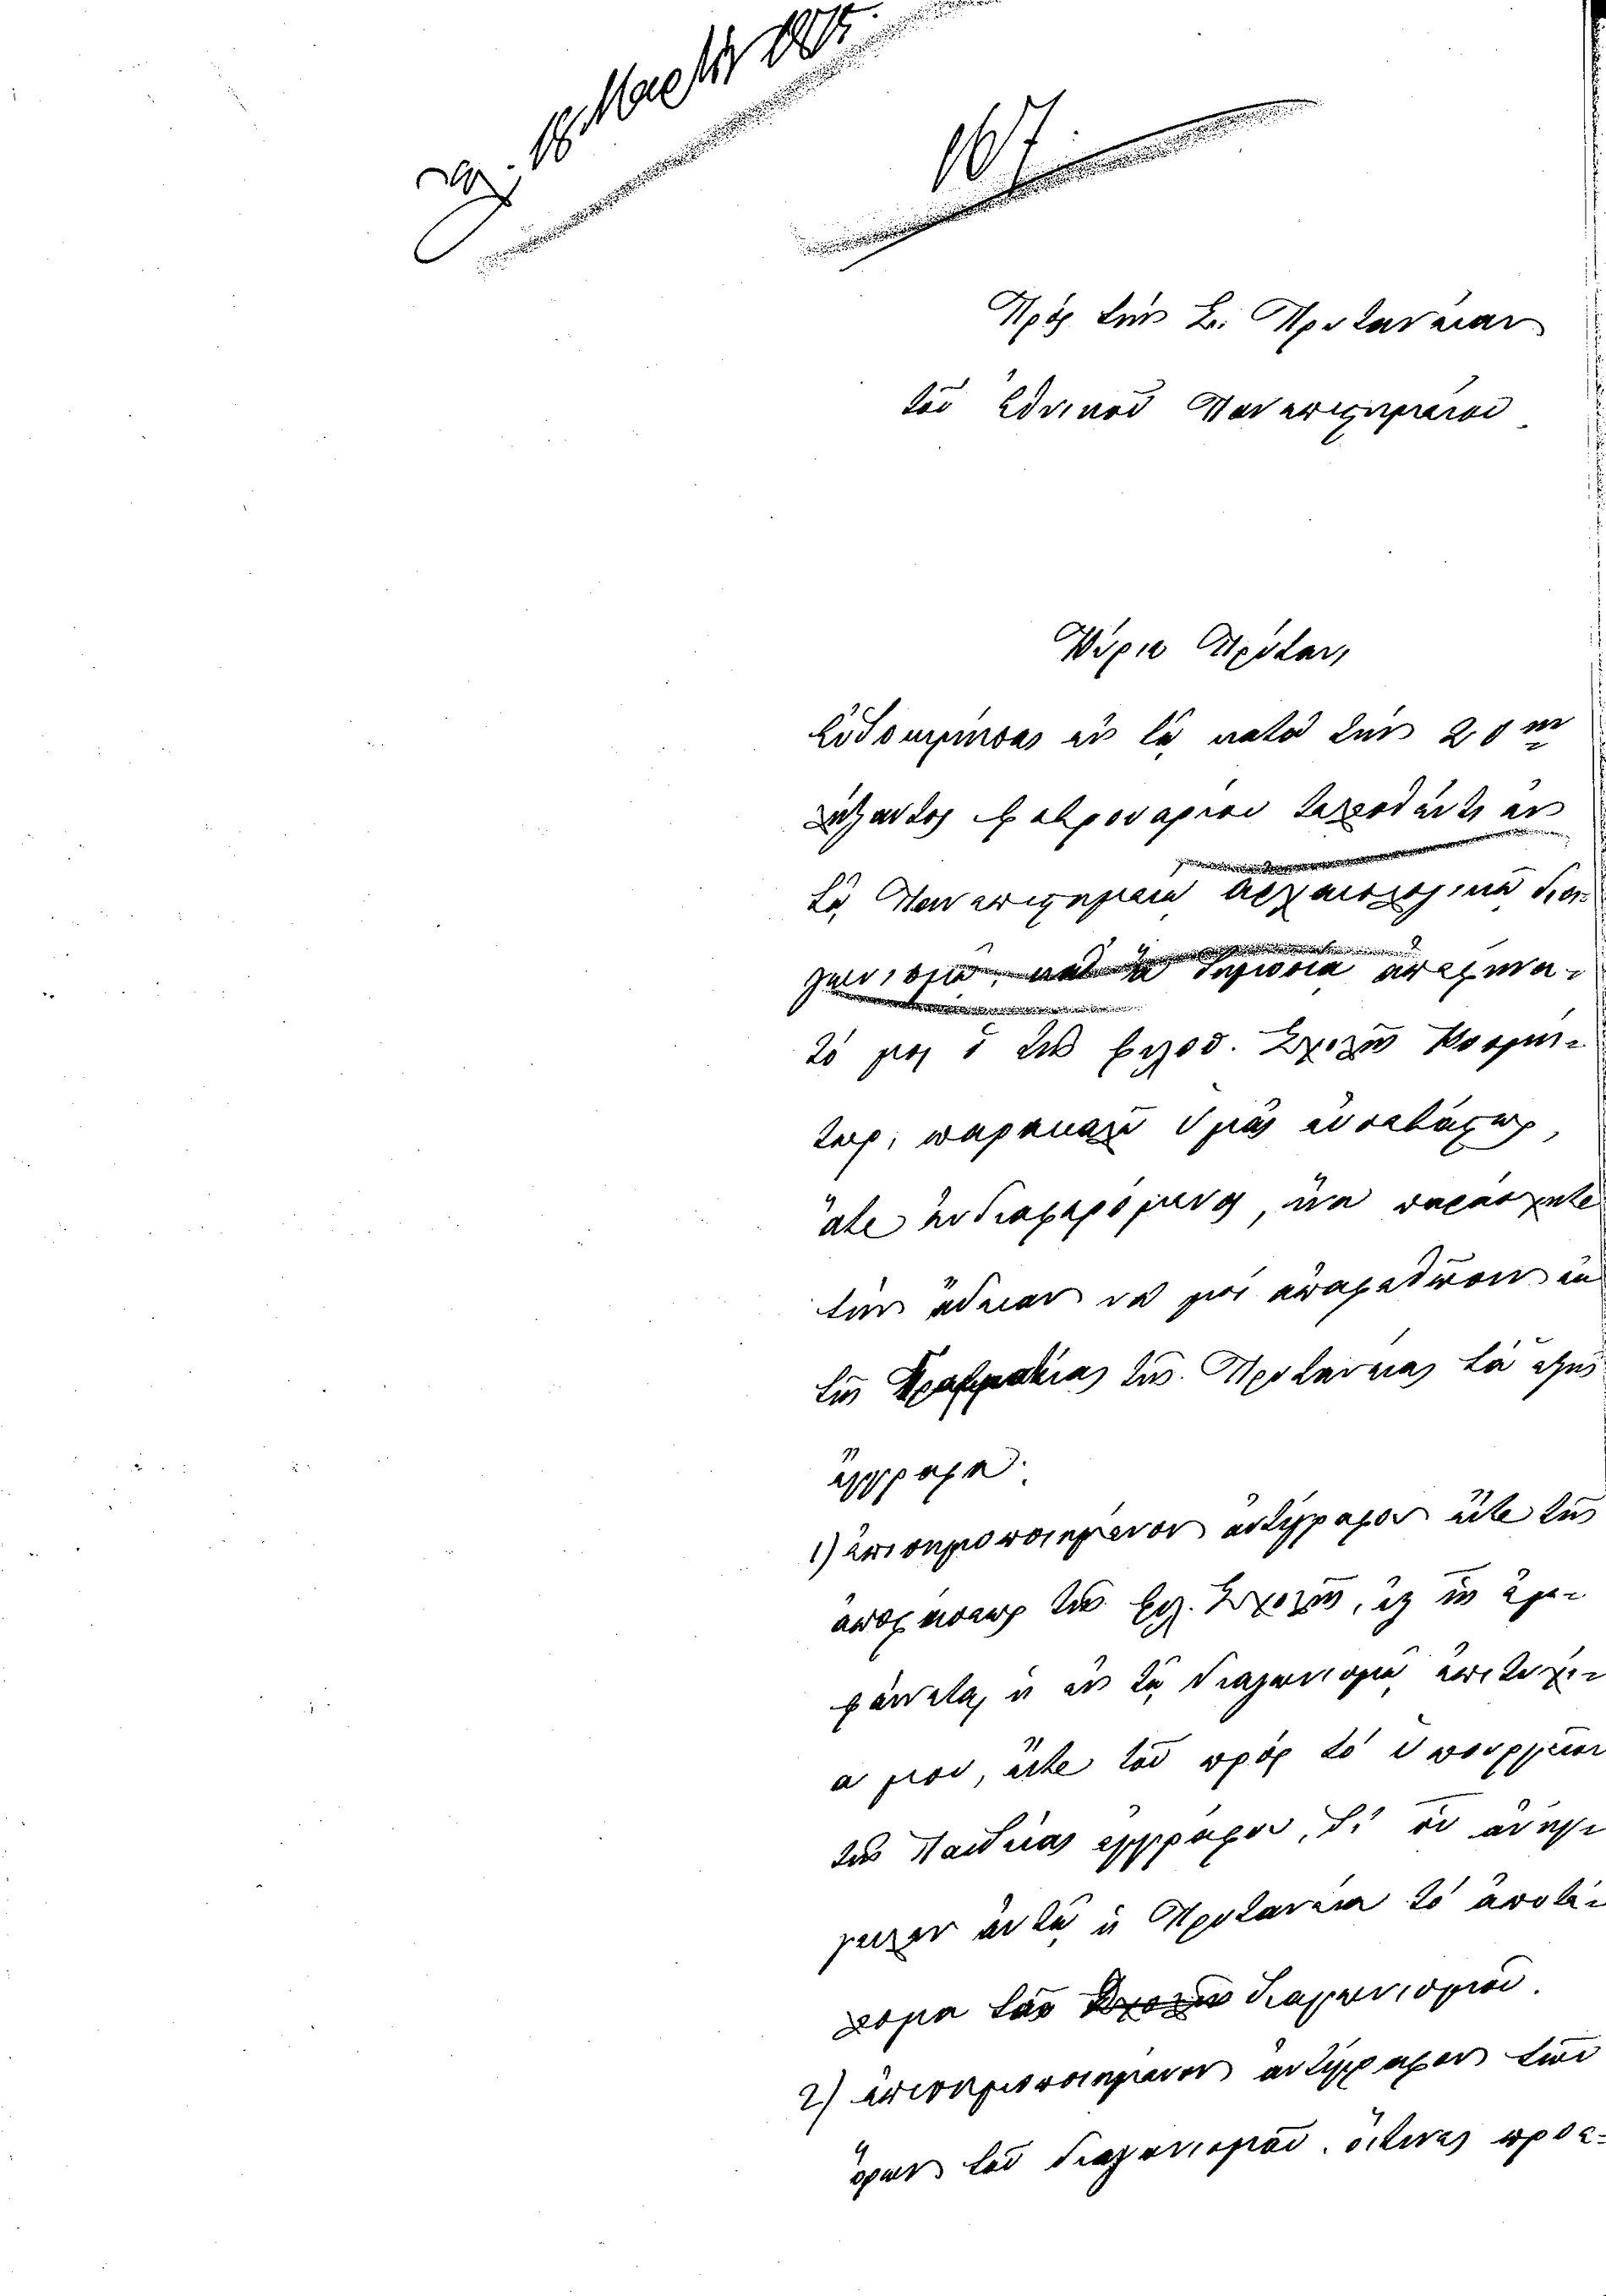 167
Πρὸς τὴν Σ. Πρυτανείαν
τοῦ Ἐθνικοῦ Πανεπιστημίου
Κύριε Πρύτανι,
Εὐδοκιμήσας ἐν τῷ κατὰ τὴν 20ην
λήξαντος Φεβρουαρίου τελεσθέντι ἐν
τῷ Πανεπιστημίῳ Ἀρχαιολογικῷ δια-
γωνισμῷ, καὶ δημοσίᾳ ἀνεφώνη-
σέ με ὁ τῆς Φιλοσ. Σχολῆς Κοσμή-
τωρ, παρακαλῶ ὑμᾶς εὐσεβάστως,
ἅτε ἐνδιαφερόμενος, ἵνα παράσχητε
τὴν ἄδειαν νά μοι ἀναφερθῶσιν ἐκ
τῆς Γραμματείας τῆς Πρυτανείας τὰ ἑξῆς
ἔγγραφα.
1) ἐπισημοποιημένον ἀντίγραφον εἴτε τῆς
ἀποφάσεως τῆς Φιλ. Σχολῆς, ἐξ ἧς ἐμ-
φαίνεται ἡ ἐν τῷ διαγωνισμῷ ἐπιτυχί-
α μου, εἴτε τοῦ πρὸς τὸ Ὑπουργεῖον
τῆς Παιδείας ἐγγράφου, δι' οὗ ἀνήγ-
γειλεν αὐτῷ ἡ Πρυτανεία τὸ ἀποτέ-
λεσμα τοῦ διαγωνισμοῦ.
2) ἐπισημοποιημένον ἀντίγραφον τῶν
ὅρων τοῦ διαγωνισμοῦ, οἵτινες προε-